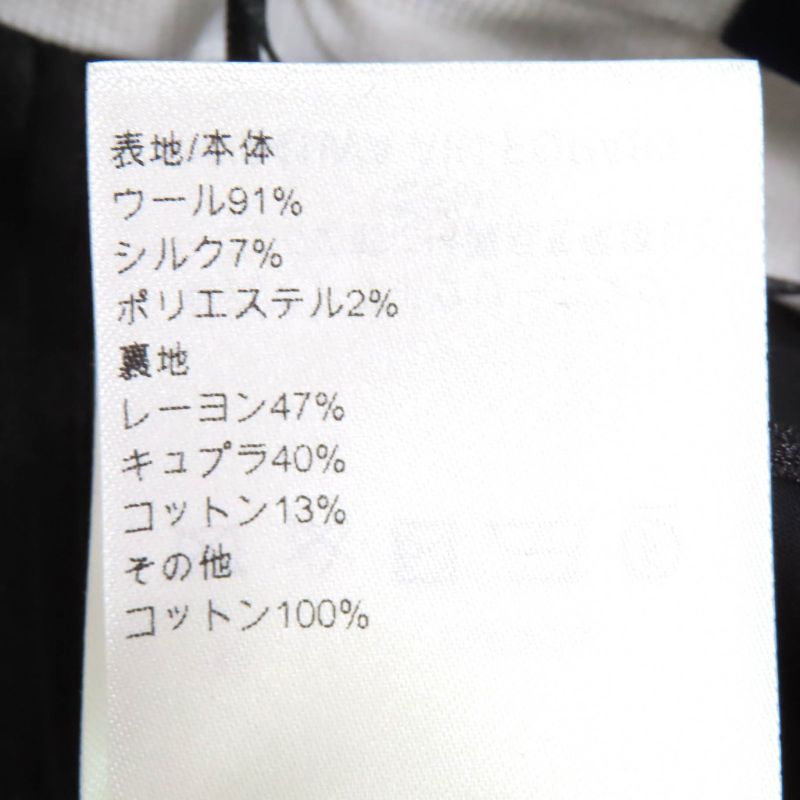 表地/本体
ウール91%
シルク7%
ポリエステル2%
裏地
レーヨン47%
キュプラ40%
コットン13%
その他
コットン100%